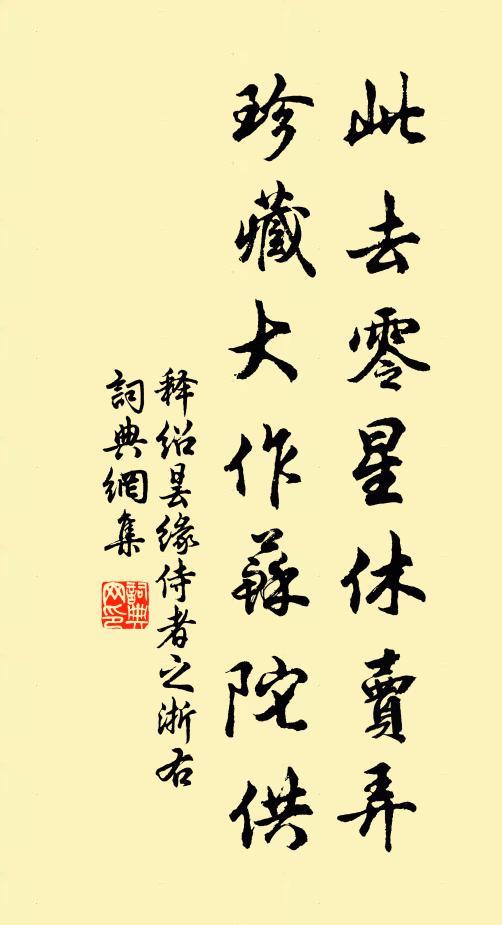 此去零星休賣弄
珍藏大作蘇陀供
释绍昙缘侍者之浙右
詞典網集
詞典网印